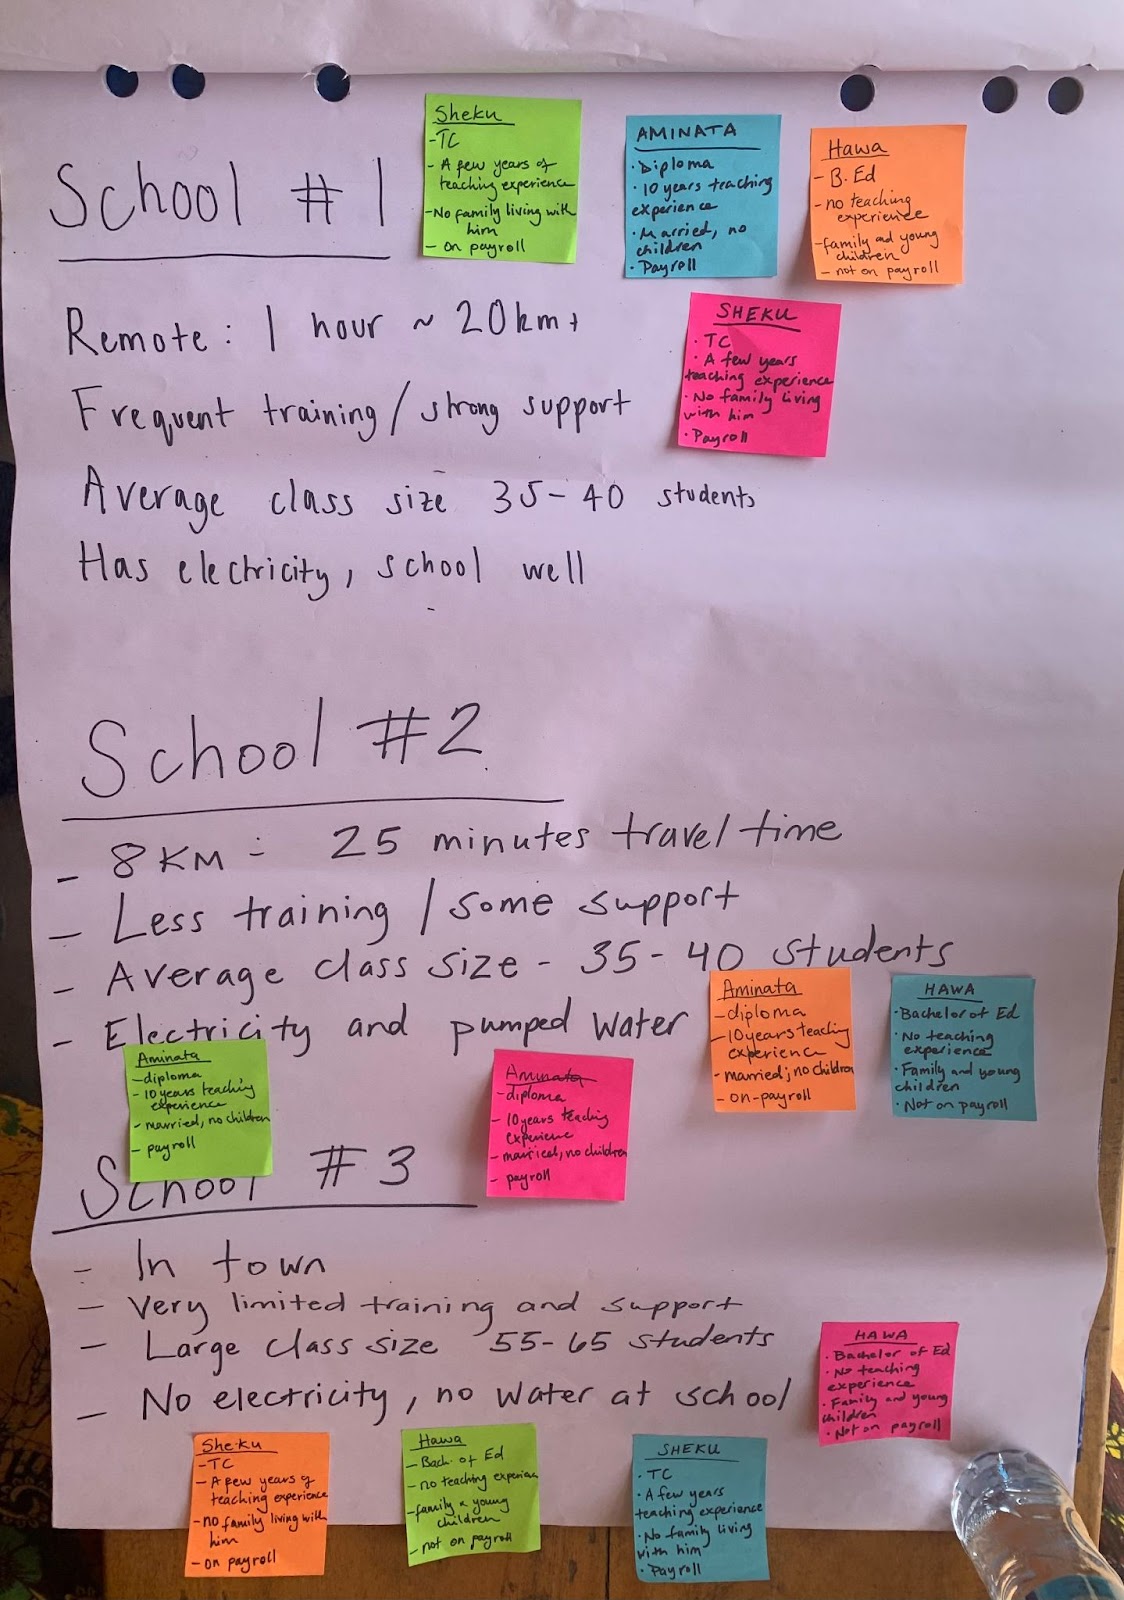 School #1
Remote: 1 hour ~ 20km+
Frequent training/strong support
Average class size 35-40 students
Has electricity, school well
Sheku
-TC
- A few years of
teaching experience
-No family living with
him
- on payroll
AMINATA
· Diploma
· 10 years teaching
experience
· Married, no
children
· Payroll
Hawa
- B.Ed
- no teaching
experience
-family and young
children
- not on payroll
SHEKU
· TC
· A few years
teaching experience
· No family living
with him
· Payroll
School #2
- 8KM - 25 minutes travel time
- Less training / some support
- Average class size - 35-40 students
- Electricity and pumped water
Aminata
-diploma
- 10 years teaching
experience
- married, no children
- payroll
Aminata
-diploma
- 10 years teaching
experience
- married, no children
- payroll
Aminata
-diploma
-10 years teaching
experience
-married; no children
- on-payroll
HAWA
· Bachelor of Ed
· No teaching
experience
· Family and young
children
· Not on payroll
School #3
- In town
- Very limited training and support
- Large class size 55-65 students
- No electricity, no water at school
HAWA
· Bachelor of Ed
· No teaching
experience
· Family and young
children
· Not on payroll
Sheku
-TC
- A few years of
teaching experience
-no family living with
him
- on payroll
Hawa
- Bach. of Ed
- no teaching experience
-family & young
children
- not on payroll
SHEKU
· TC
· A few years
teaching experience
· No family living
with him
· Payroll